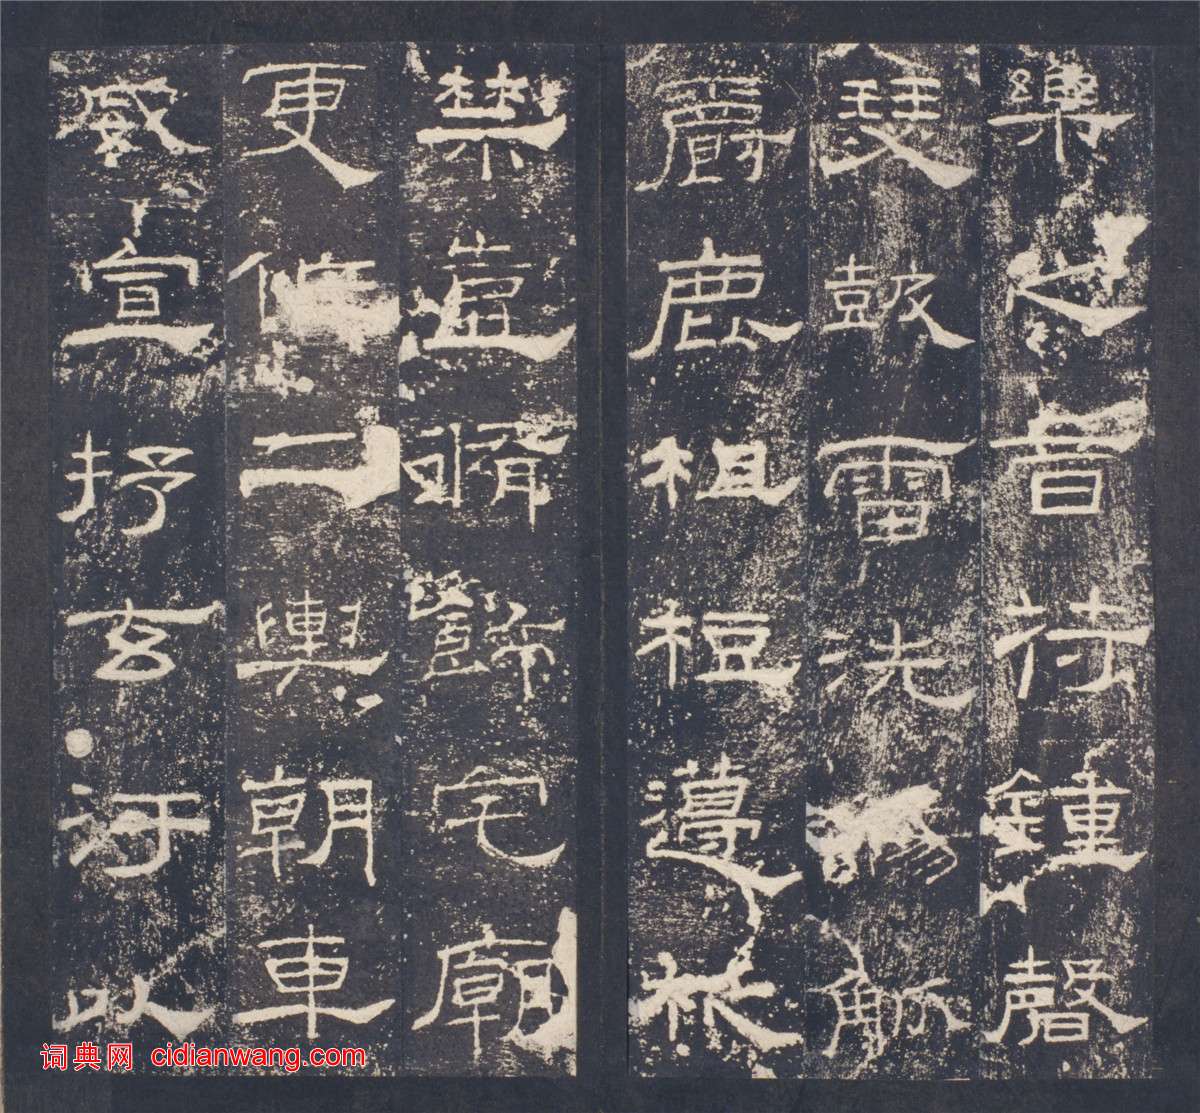 樂之音符鍾磬
瑟鼓雷洗觴觚
爵鹿柤梪籩柉
禁壺脩飾宅廟
更作二輿朝車
威宣抒玄汙以
词典网 cidianwang.com